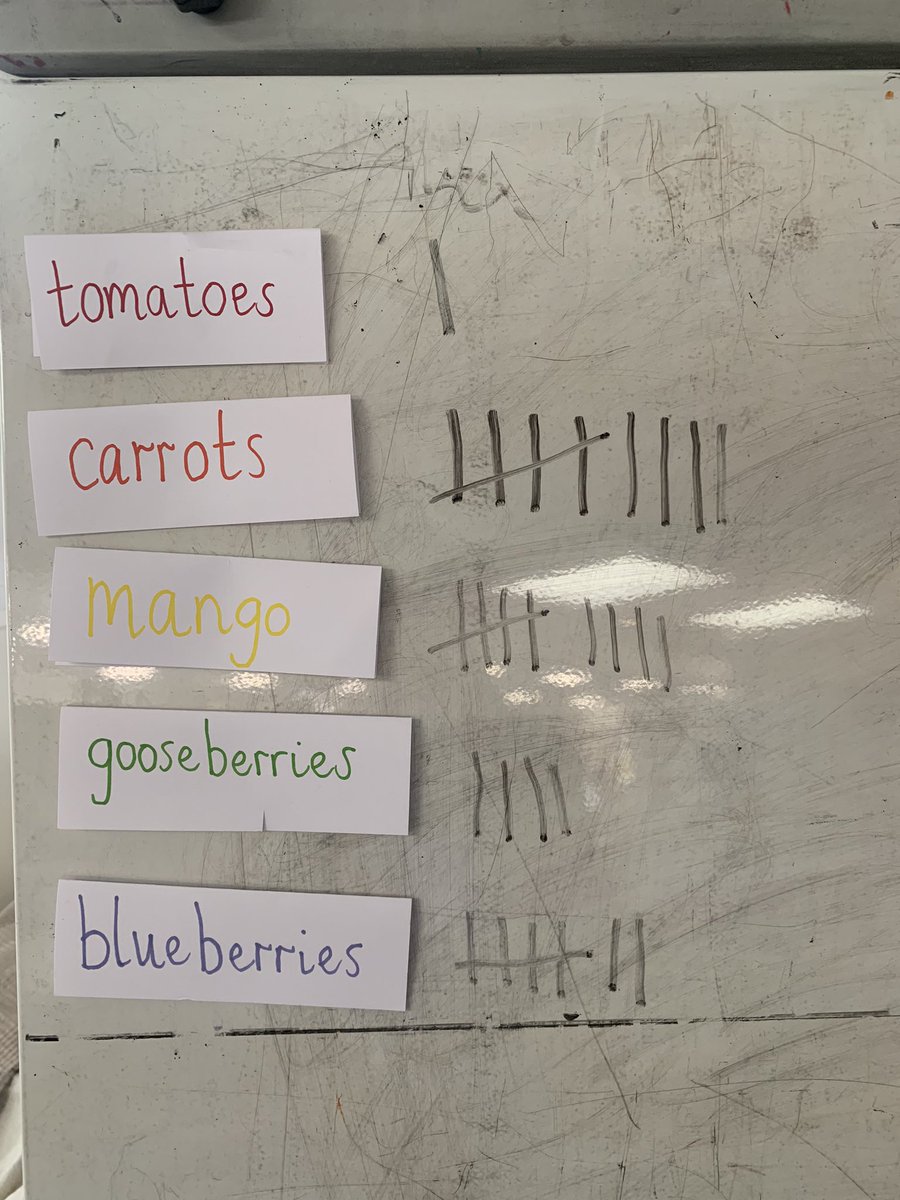 tomatoes
carrots
mango
gooseberries
blueberries